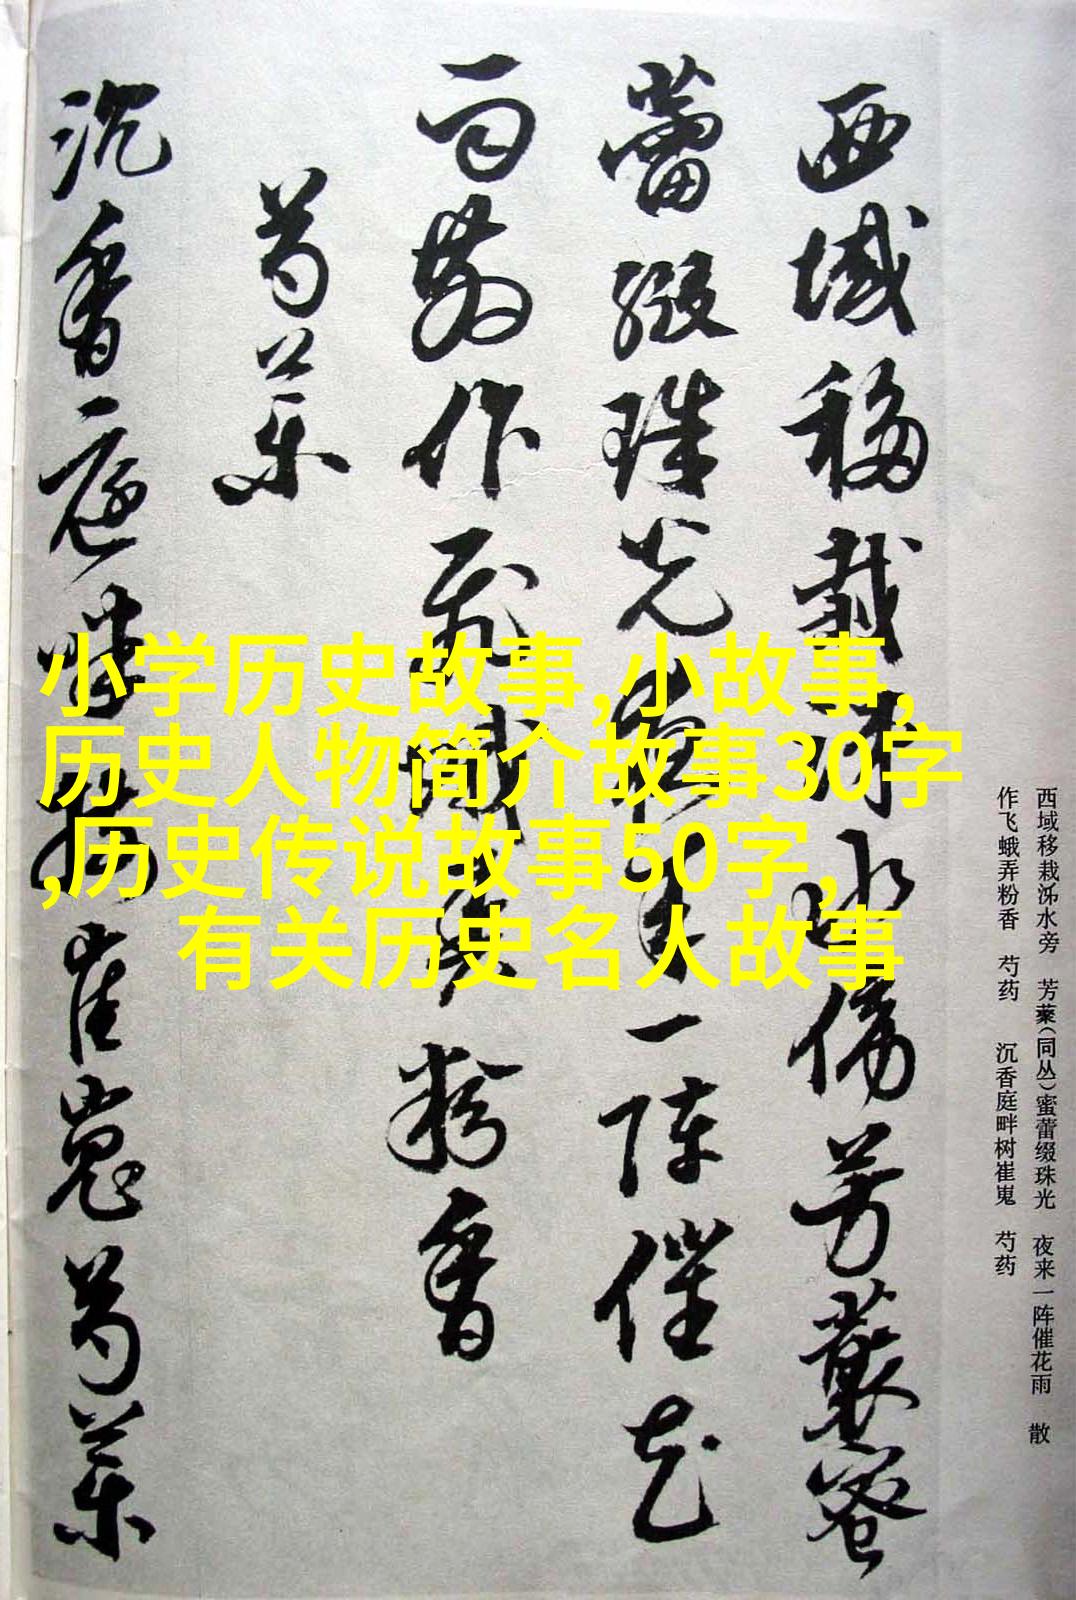 西域移栽泲水旁 芳藂(同丛)蜜蕾缀珠光 夜来一阵催花雨 散
作飞蛾弄粉香 芍药 沉香庭畔树崔嵬 芍药
西域移栽泲水傍芳藂蜜
蕾綴珠光夜来一陣催花
雨散作飛蛾弄粉香
芍藥
沉香庭畔樹崔嵬芍藥
小学历史故事,小故事,
历史人物简介故事30字
,历史传说故事50字,
有关历史名人故事